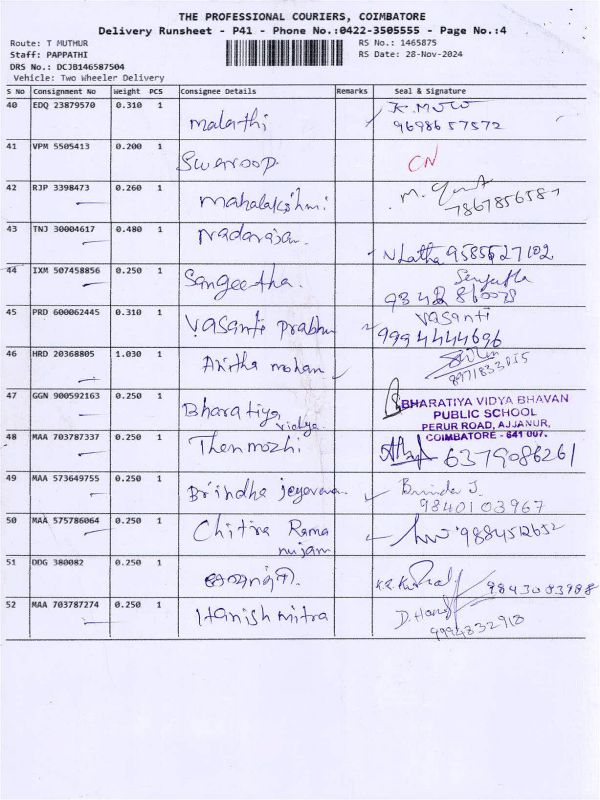 THE PROFESSIONAL COURIERS, COIMBATORE
Delivery Runsheet - P41 - Phone No.:0422-3505555 - Page No.:4
Route: T MUTHUR
RS No.: 1465875
Staff: PAPPATHI
RS Date: 28-Nov-2024
DRS No.: DCJB146587504
Vehicle: Two Wheeler Delivery
S No Consignment No Weight PCS Consignee Details Remarks Seal & Signature
40 EDQ 23879570 0.310 1 Malathi 9698657572
41 VPM 5505413 0.200 1 Swaroop. CN
42 RJP 3398473 0.260 1 Mahalakshmi 7867856587
43 TNJ 30004617 0.480 1 Nadarajan. N Latha 9585527102
44 IXM 507458856 0.250 1 Sangeetha.
45 PRD 600062445 0.310 1 Vasanti Prabhu Vasanti
9994444696
46 HRD 20368805 1.030 1 Anitha mohan
47 GGN 900592163 0.250 1 Bharatiya vidya. BHARATIYA VIDYA BHAVAN
PUBLIC SCHOOL
PERUR ROAD, AJJANUR,
COIMBATORE - 641 007.
48 MAA 703787337 0.250 1 Thenmozhi 6379086261
49 MAA 573649755 0.250 1 Brindha Brinda J.
9840103967
50 MAA 575786064 0.250 1 Chitra Rama
nujam 9884512652
51 DDG 380082 0.250 1 9843083988
52 MAA 703787274 0.250 1 Hanishmitra 9994832918